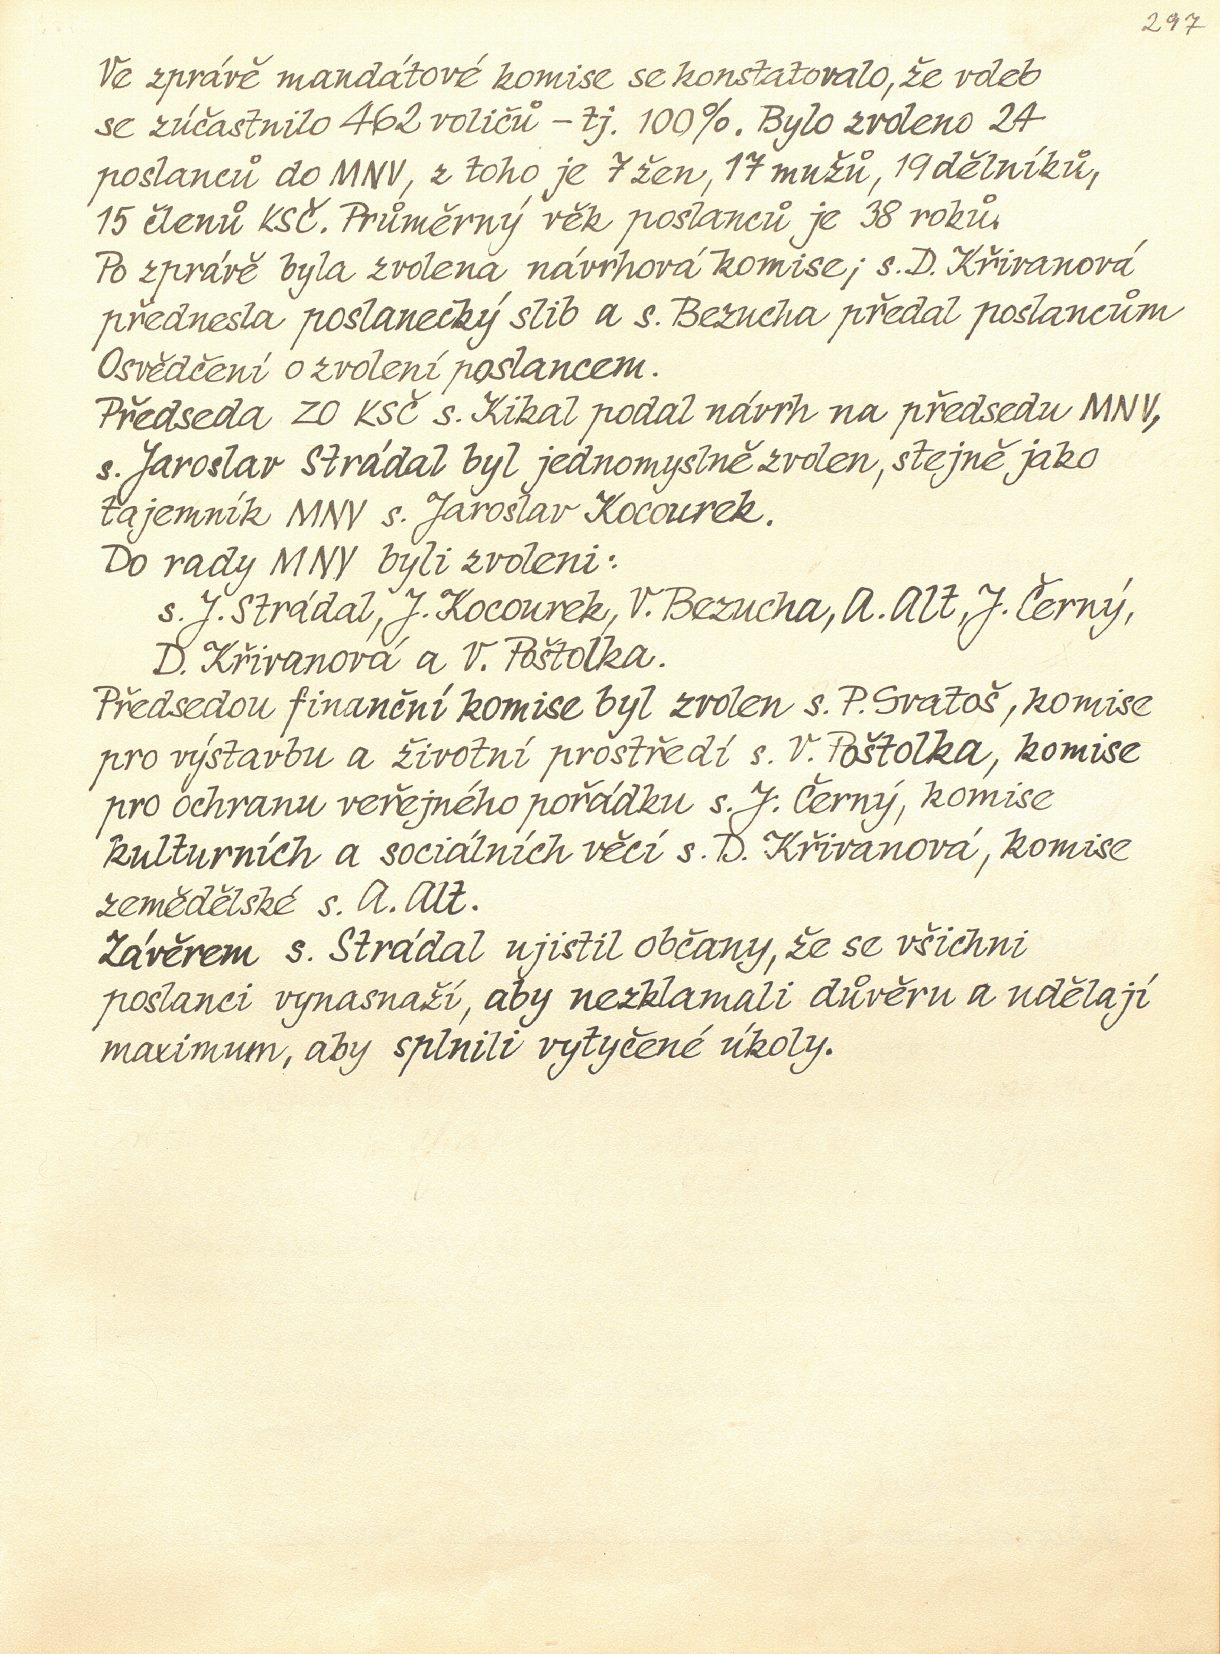 297
Ve zprávě mandátové komise se konstatovalo, že voleb
se zúčastnilo 462 voličů – tj. 100%. Bylo zvoleno 24
poslanců do MNV, z toho je 7 žen, 17 mužů, 19 dělníků,
15 členů KSČ. Průměrný věk poslanců je 38 roků.
Po zprávě byla zvolena návrhová komise; s. D. Křivanová
přednesla poslanecký slib a s. Bezucha předal poslancům
Osvědčení o zvolení poslancem.
Předseda ZO KSČ s. Kikal podal návrh na předsedu MNV,
s. Jaroslav Strádal byl jednomyslně zvolen, stejně jako
tajemník MNV s. Jaroslav Kocourek.
Do rady MNV byli zvoleni:
s. J. Strádal, J. Kocourek, V. Bezucha, A. Alt, J. Černý,
D. Křivanová a V. Poštolka.
Předsedou finanční komise byl zvolen s. P. Svatoš, komise
pro výstavbu a životní prostředí s. V. Poštolka, komise
pro ochranu veřejného pořádku s. J. Černý, komise
kulturních a sociálních věcí s. D. Křivanová, komise
zemědělské s. A. Alt.
Závěrem s. Strádal ujistil občany, že se všichni
poslanci vynasnaží, aby nezklamali důvěru a udělají
maximum, aby splnili vytyčené úkoly.